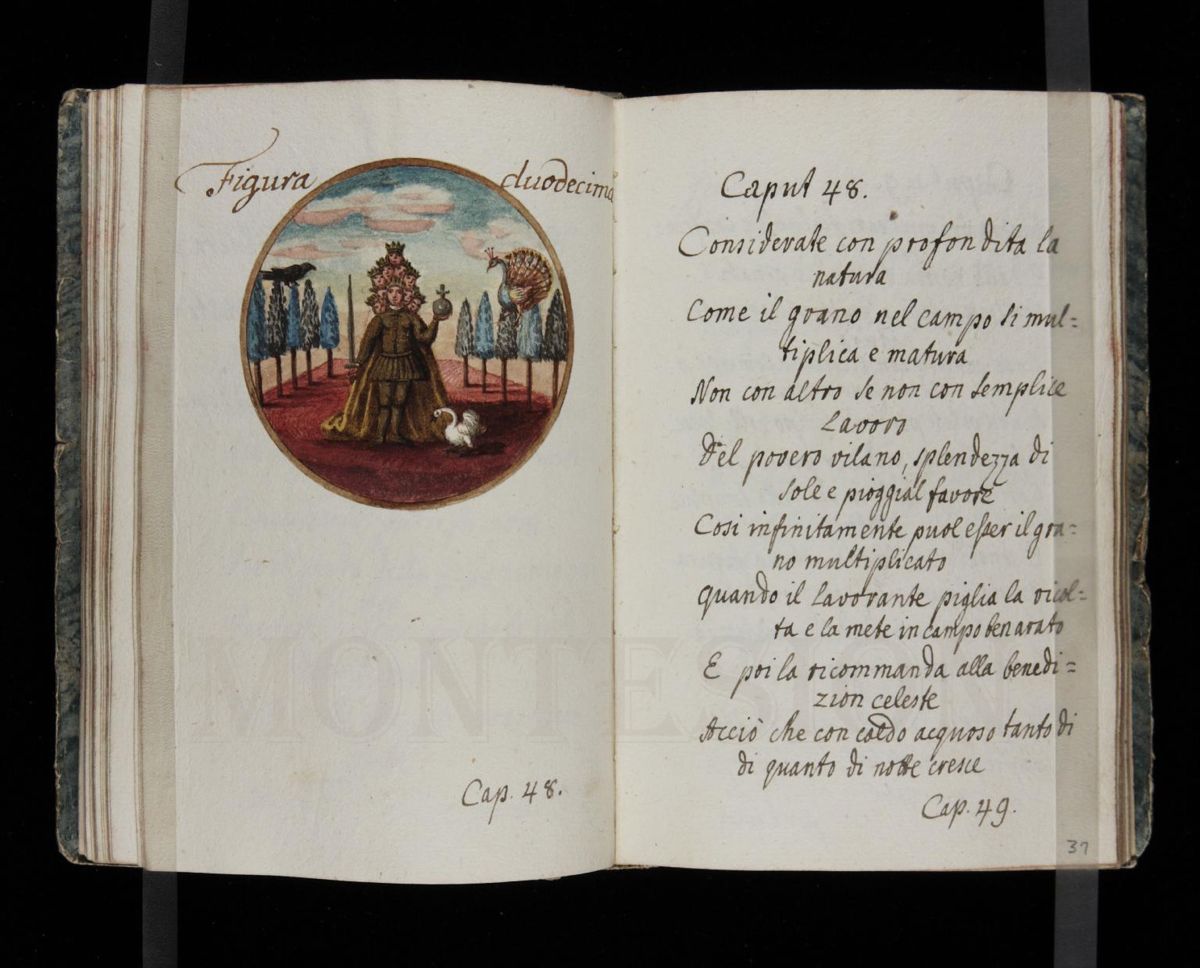 Figura duodecima
Cap. 48.
Caput 48.
Considerate con profondita la
natura
Come il grano nel campo si mul=
tiplica e matura
Non con altro se non con semplice
Lavoro
Del povero vilano, splendezza di
sole e pioggial favore
Cosi infinitamente puol esser il gra=
no multiplicato
quando il Lavorante piglia la ricol=
ta e la mete in campo ben arato
E poi la ricommanda alla benedi=
zion celeste
Acciò che con caldo acquoso tanto di
di quanto di notte cresce
Cap. 49.
37
MONTESION